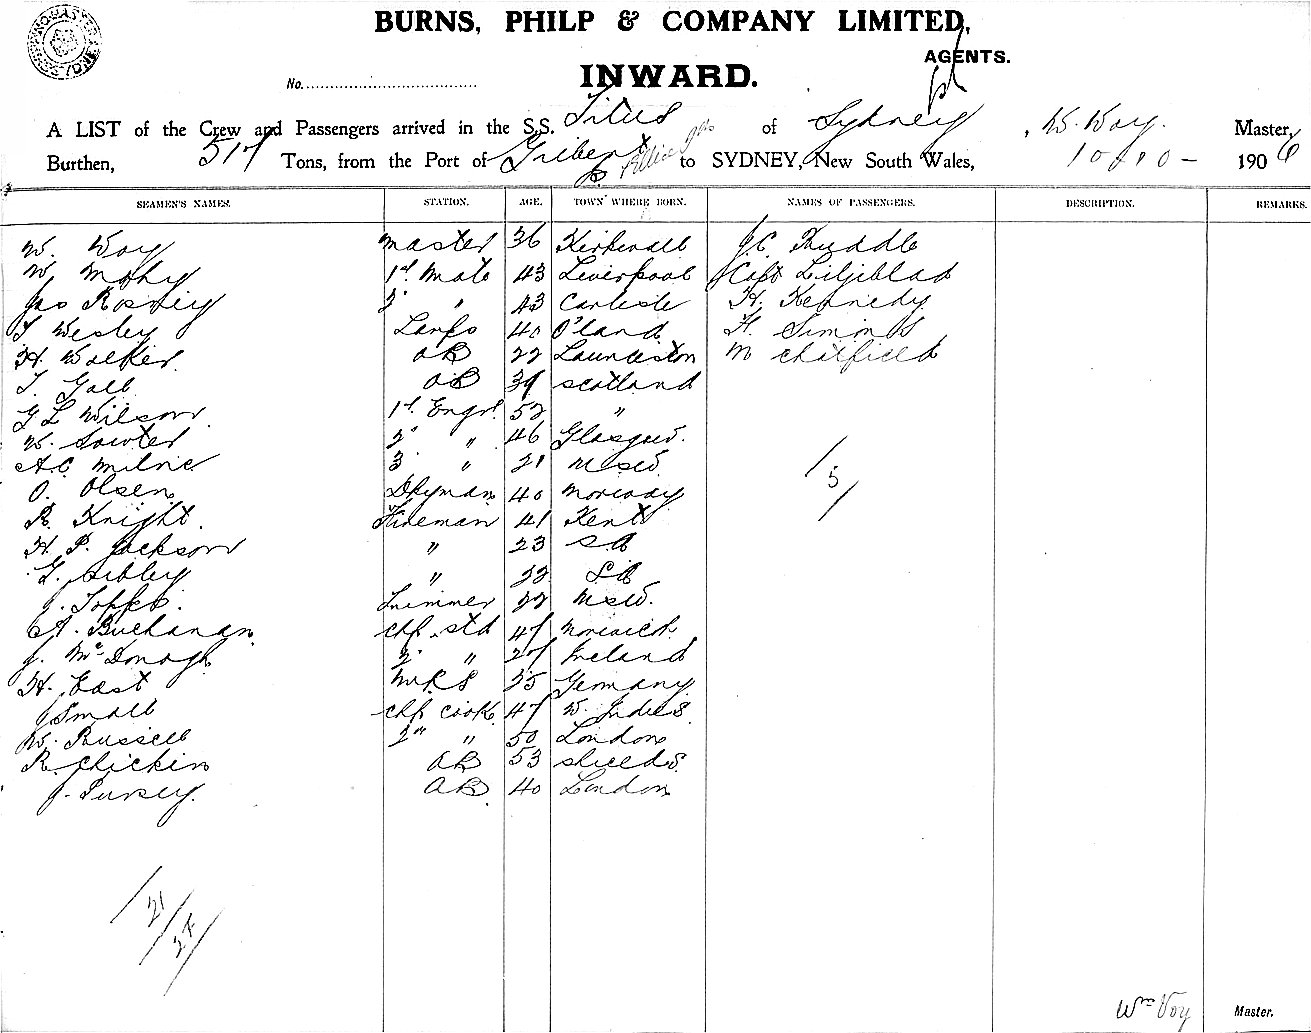 BURNS, PHILP & COMPANY LIMITED,
AGENTS.
No.
INWARD.
A LIST of the Crew and Passengers arrived in the S.S. Titus of Sydney, W. Voy. Master,
Burthen, 517 Tons, from the Port of Gilbert & Ellice Gps to SYDNEY, New South Wales, 1906
SEAMEN'S NAMES. STATION. AGE. TOWN WHERE BORN. NAMES OF PASSENGERS. DESCRIPTION. REMARKS.
W. Voy Master 36 Kirkwall J.C. Kuddle
W Mohy 1st Mate 43 Liverpool Capt Liljeblad
Jas 2" " 43 Carlisle H. Kennedy
T Wesley Lamps 40 O'land H. Simms
H. Walker AB 22 Launceston M Chatfield
T. Gall AB 39 Scotland
G L Wilson 1st Engr. 52 "
W. Sowter 2" " 46 Glasgow.
A.C. Milne 3" " 21 NSW.
O. Olsen Dkyman 40 Norway
R. Knight. Fireman 41 Kent
H. P. Jackson " 23 SA
G. Sibley " 22 SA
J. Trimmer 22 NSW.
A. Buchanan chf. std 47 Norwich
J. McDonagh 2" " 27 Ireland
H. East M.R.S 35 Germany
J Small chf cook 47 W. Indies.
W. Russell 2nd " 50 London
R. Chickin AB 53 Shields.
J. Pursey. AB 40 London
5
21
27
Wm Voy Master.